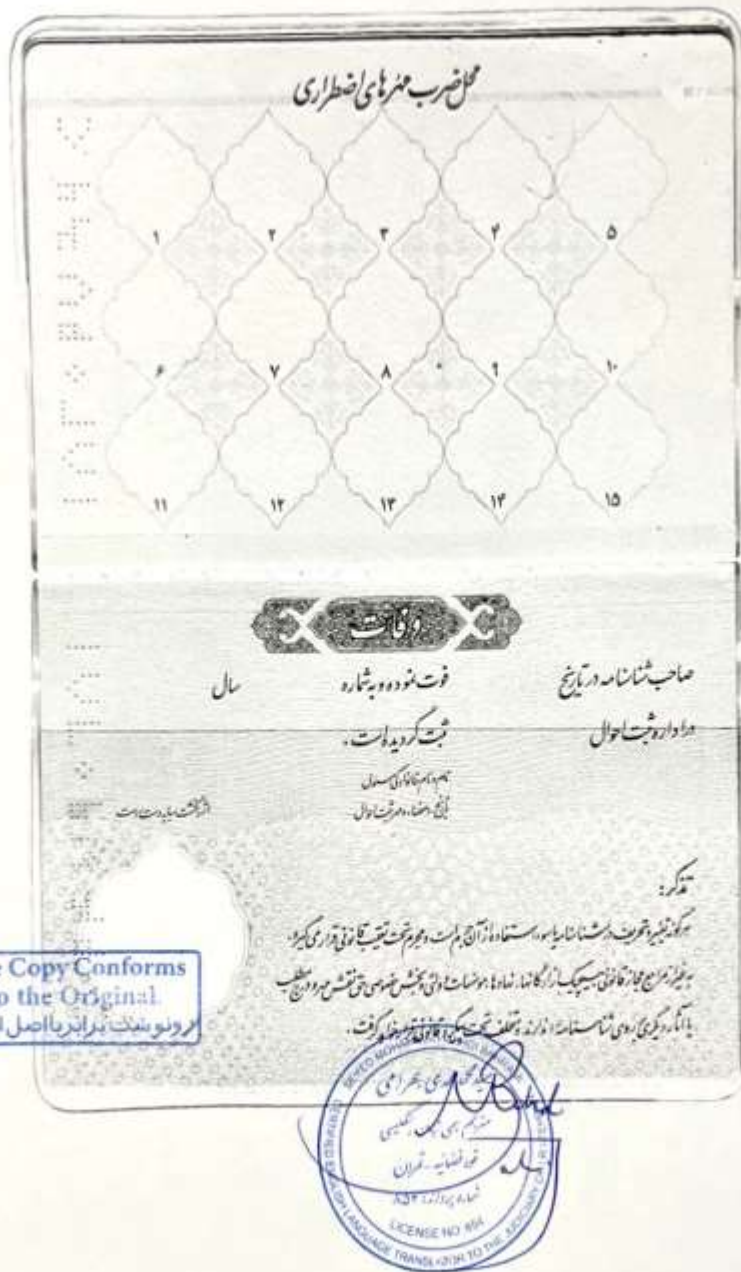 محل ضرب مهرهای اضطراری
۱ ۲ ۳ ۴ ۵
۶ ۷ ۸ ۹ ۱۰
۱۱ ۱۲ ۱۳ ۱۴ ۱۵
وفات
صاحب شناسنامه در تاریخ فوت نموده و به شماره سال
در اداره ثبت احوال ثبت گردیده است.
نام و نام خانوادگی مسئول
تاریخ، امضاء و مهر ثبت احوال اثر انگشت سبابه دست راست
تذکر:
هرگونه تغییر و تحریف در شناسنامه یا سوء استفاده از آن جرم است و مجرم تحت تعقیب قانونی قرار می گیرد.
به غیر از مراجع مجاز قانونی هیچیک از ارگانها، نهادها، موسسات دولتی بخش خصوصی حق نقش مهر و درج مطلب
یا آثار دیگری روی شناسنامه را ندارند، متخلف تحت پیگرد قانونی قرار خواهد گرفت.
Copy Conforms
o the Original.
رونوشت برابر با اصل
مترجم رسمی زبان انگلیسی
قوه قضائیه - تهران
شماره پروانه: ۸۵۴
LICENSE NO 854
CERTIFIED ENGLISH LANGUAGE TRANSLATOR TO THE JUDICIARY OF